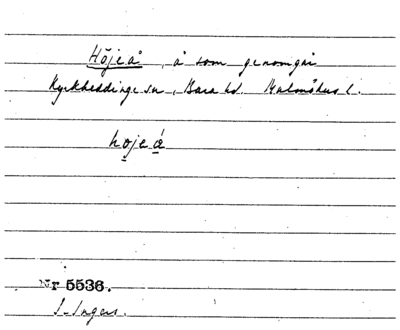 Höjeå, å som genomgår
Kyrkheddinge sn, Bara hd. Malmöhus l.
hojeå
Nr 5536.
S. Ingers.